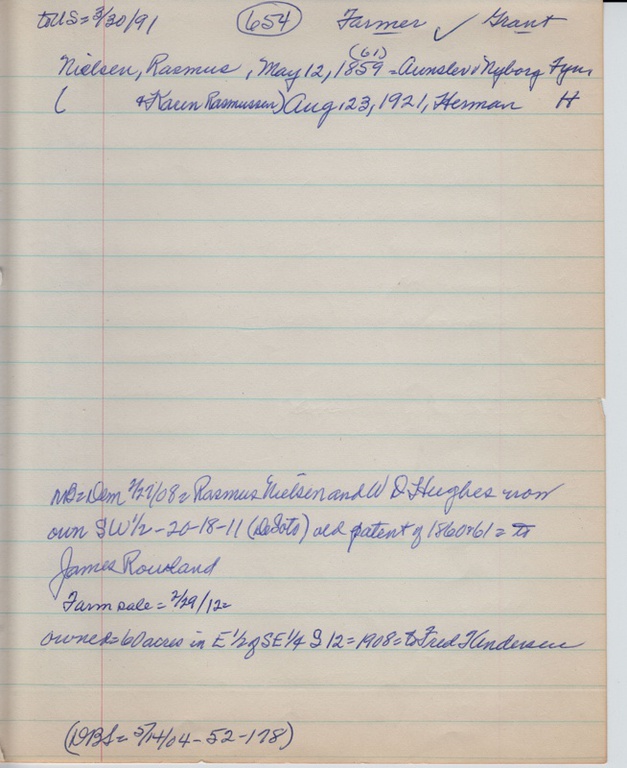 to US = 3/30/91 (654) Farmer ✓ Grant
(61)
Nielsen, Rasmus, May 12, 1859 = Aunslev i Nyborg Fyn
( & Karen Rasmussen) Aug. 23, 1921, Herman H
NB = Dem 2/27/08 = Rasmus Nielsen and W D Hughes now
own SW 1/2 - 20-18-11 (DeSoto) old patent of 1860 & 61 = to
James Rowland
Farm sale = 2/29/12 =
owned = 60 acres in E 1/2 of SE 1/4 S 12 = 1908 = to Fred Andersen
(DBS = 5/14/04 - 52 - 178)